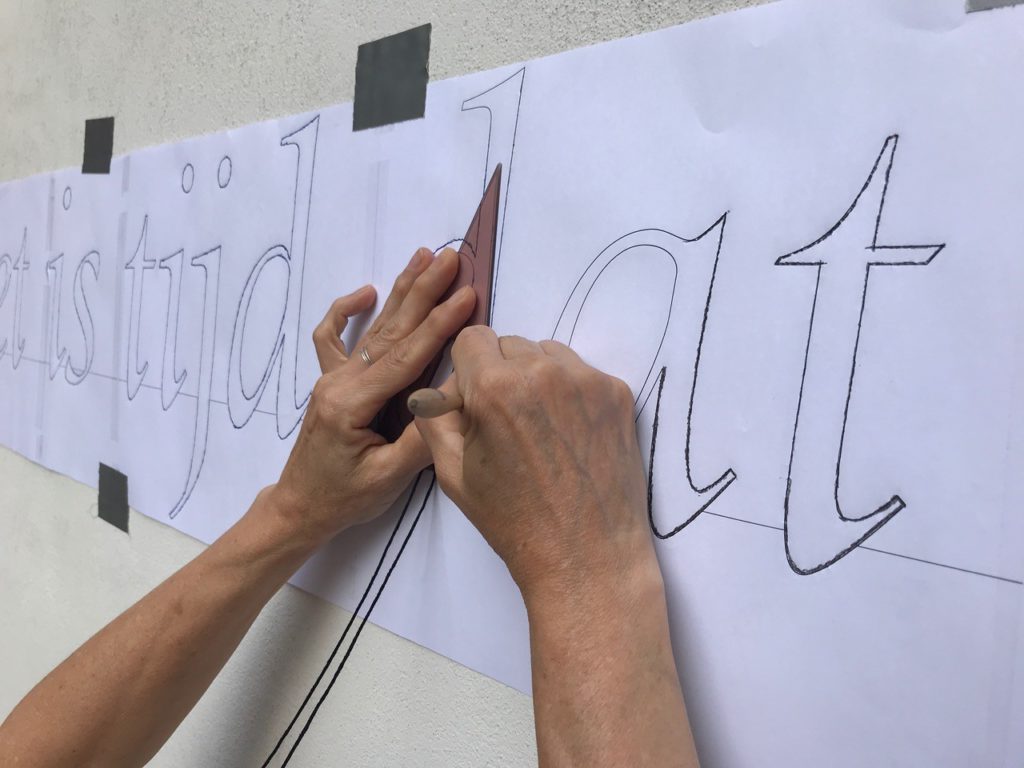 et is tijd dat